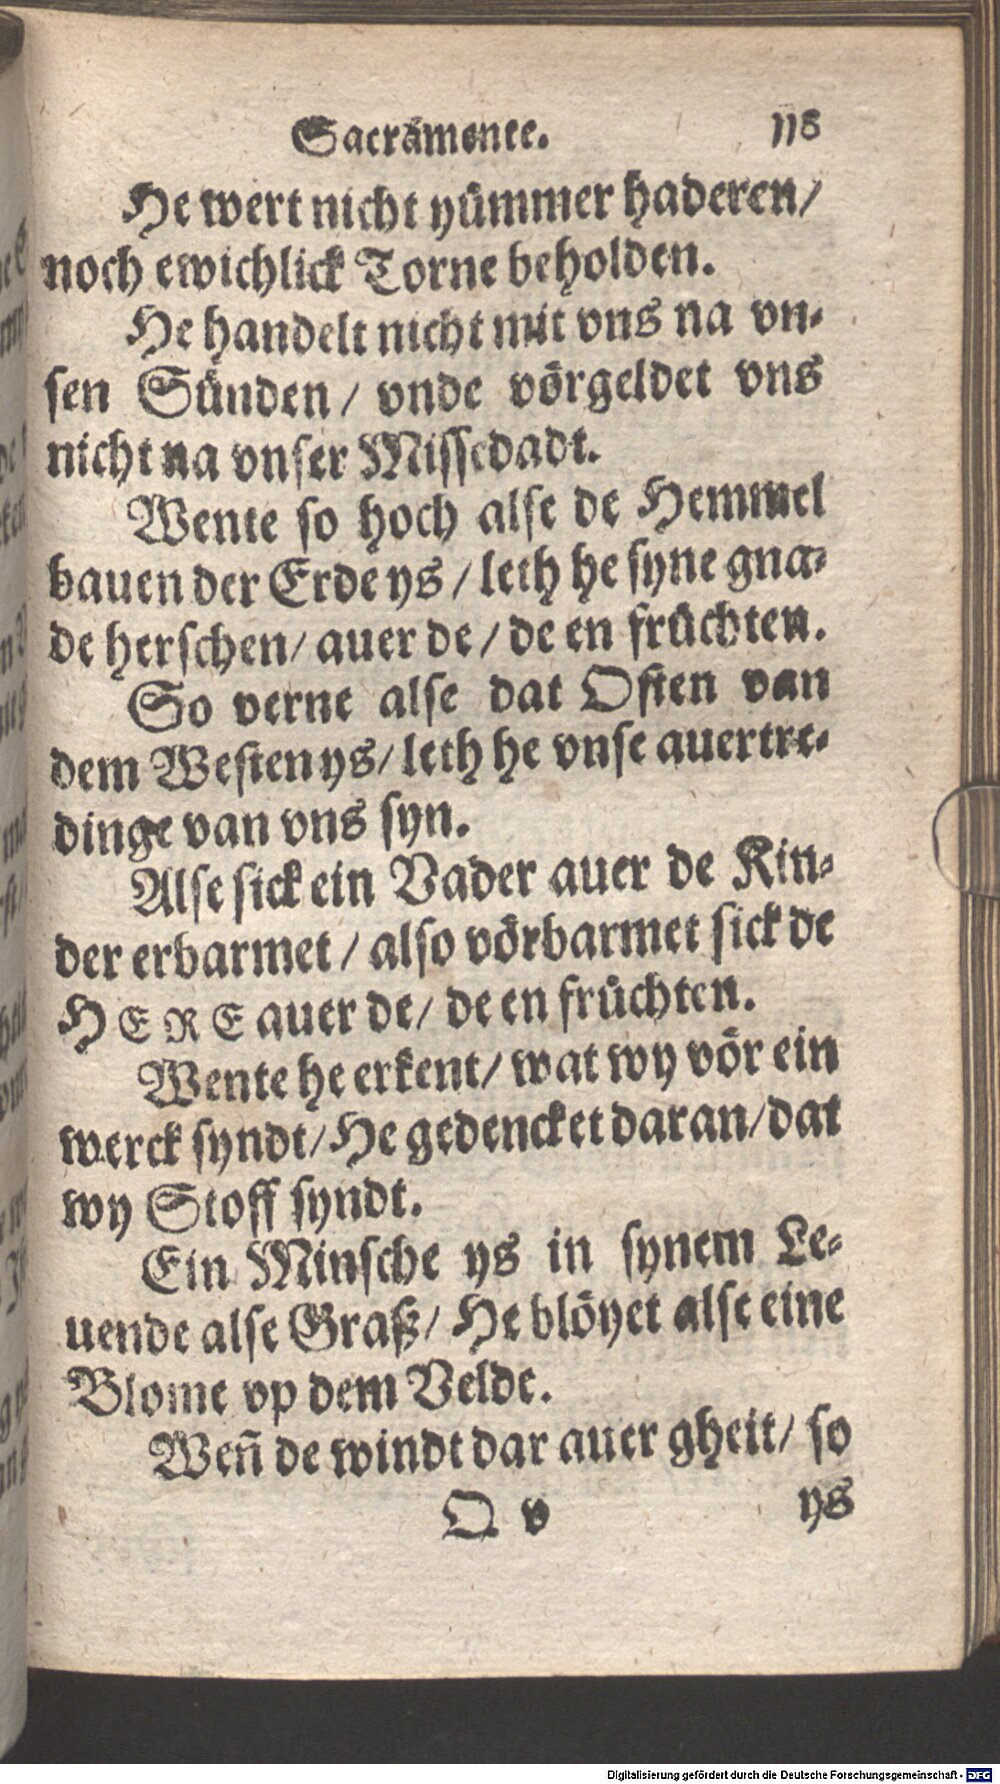 Sacramente. 118
He wert nicht yümmer haderen/
noch ewichlick Torne beholden.
He handelt nicht mit vns na vn-
sen Sünden / vnde vörgeldet vns
nicht na vnser Missedadt.
Wente so hoch alse de Hemmel
bauen der Erde ys / leth he syne gna-
de herschen/ auer de / de en früchten.
So verne alse dat Osten van
dem Westen ys/ leth he vnse auertre-
dinge van vns syn.
Alse sick ein Vader auer de Kin-
der erbarmet / also vörbarmet sick de
HERE auer de/ de en früchten.
Wente he erkent/ wat wy vör ein
werck syndt/ He gedencket daran/ dat
wy Stoff syndt.
Ein Minsche ys in synem Le-
uende alse Graß/ He blöyet alse eine
Blome vp dem Velde.
Weñ de windt dar auer gheit/ so
O v ys
Digitalisierung gefördert durch die Deutsche Forschungsgemeinschaft - DFG